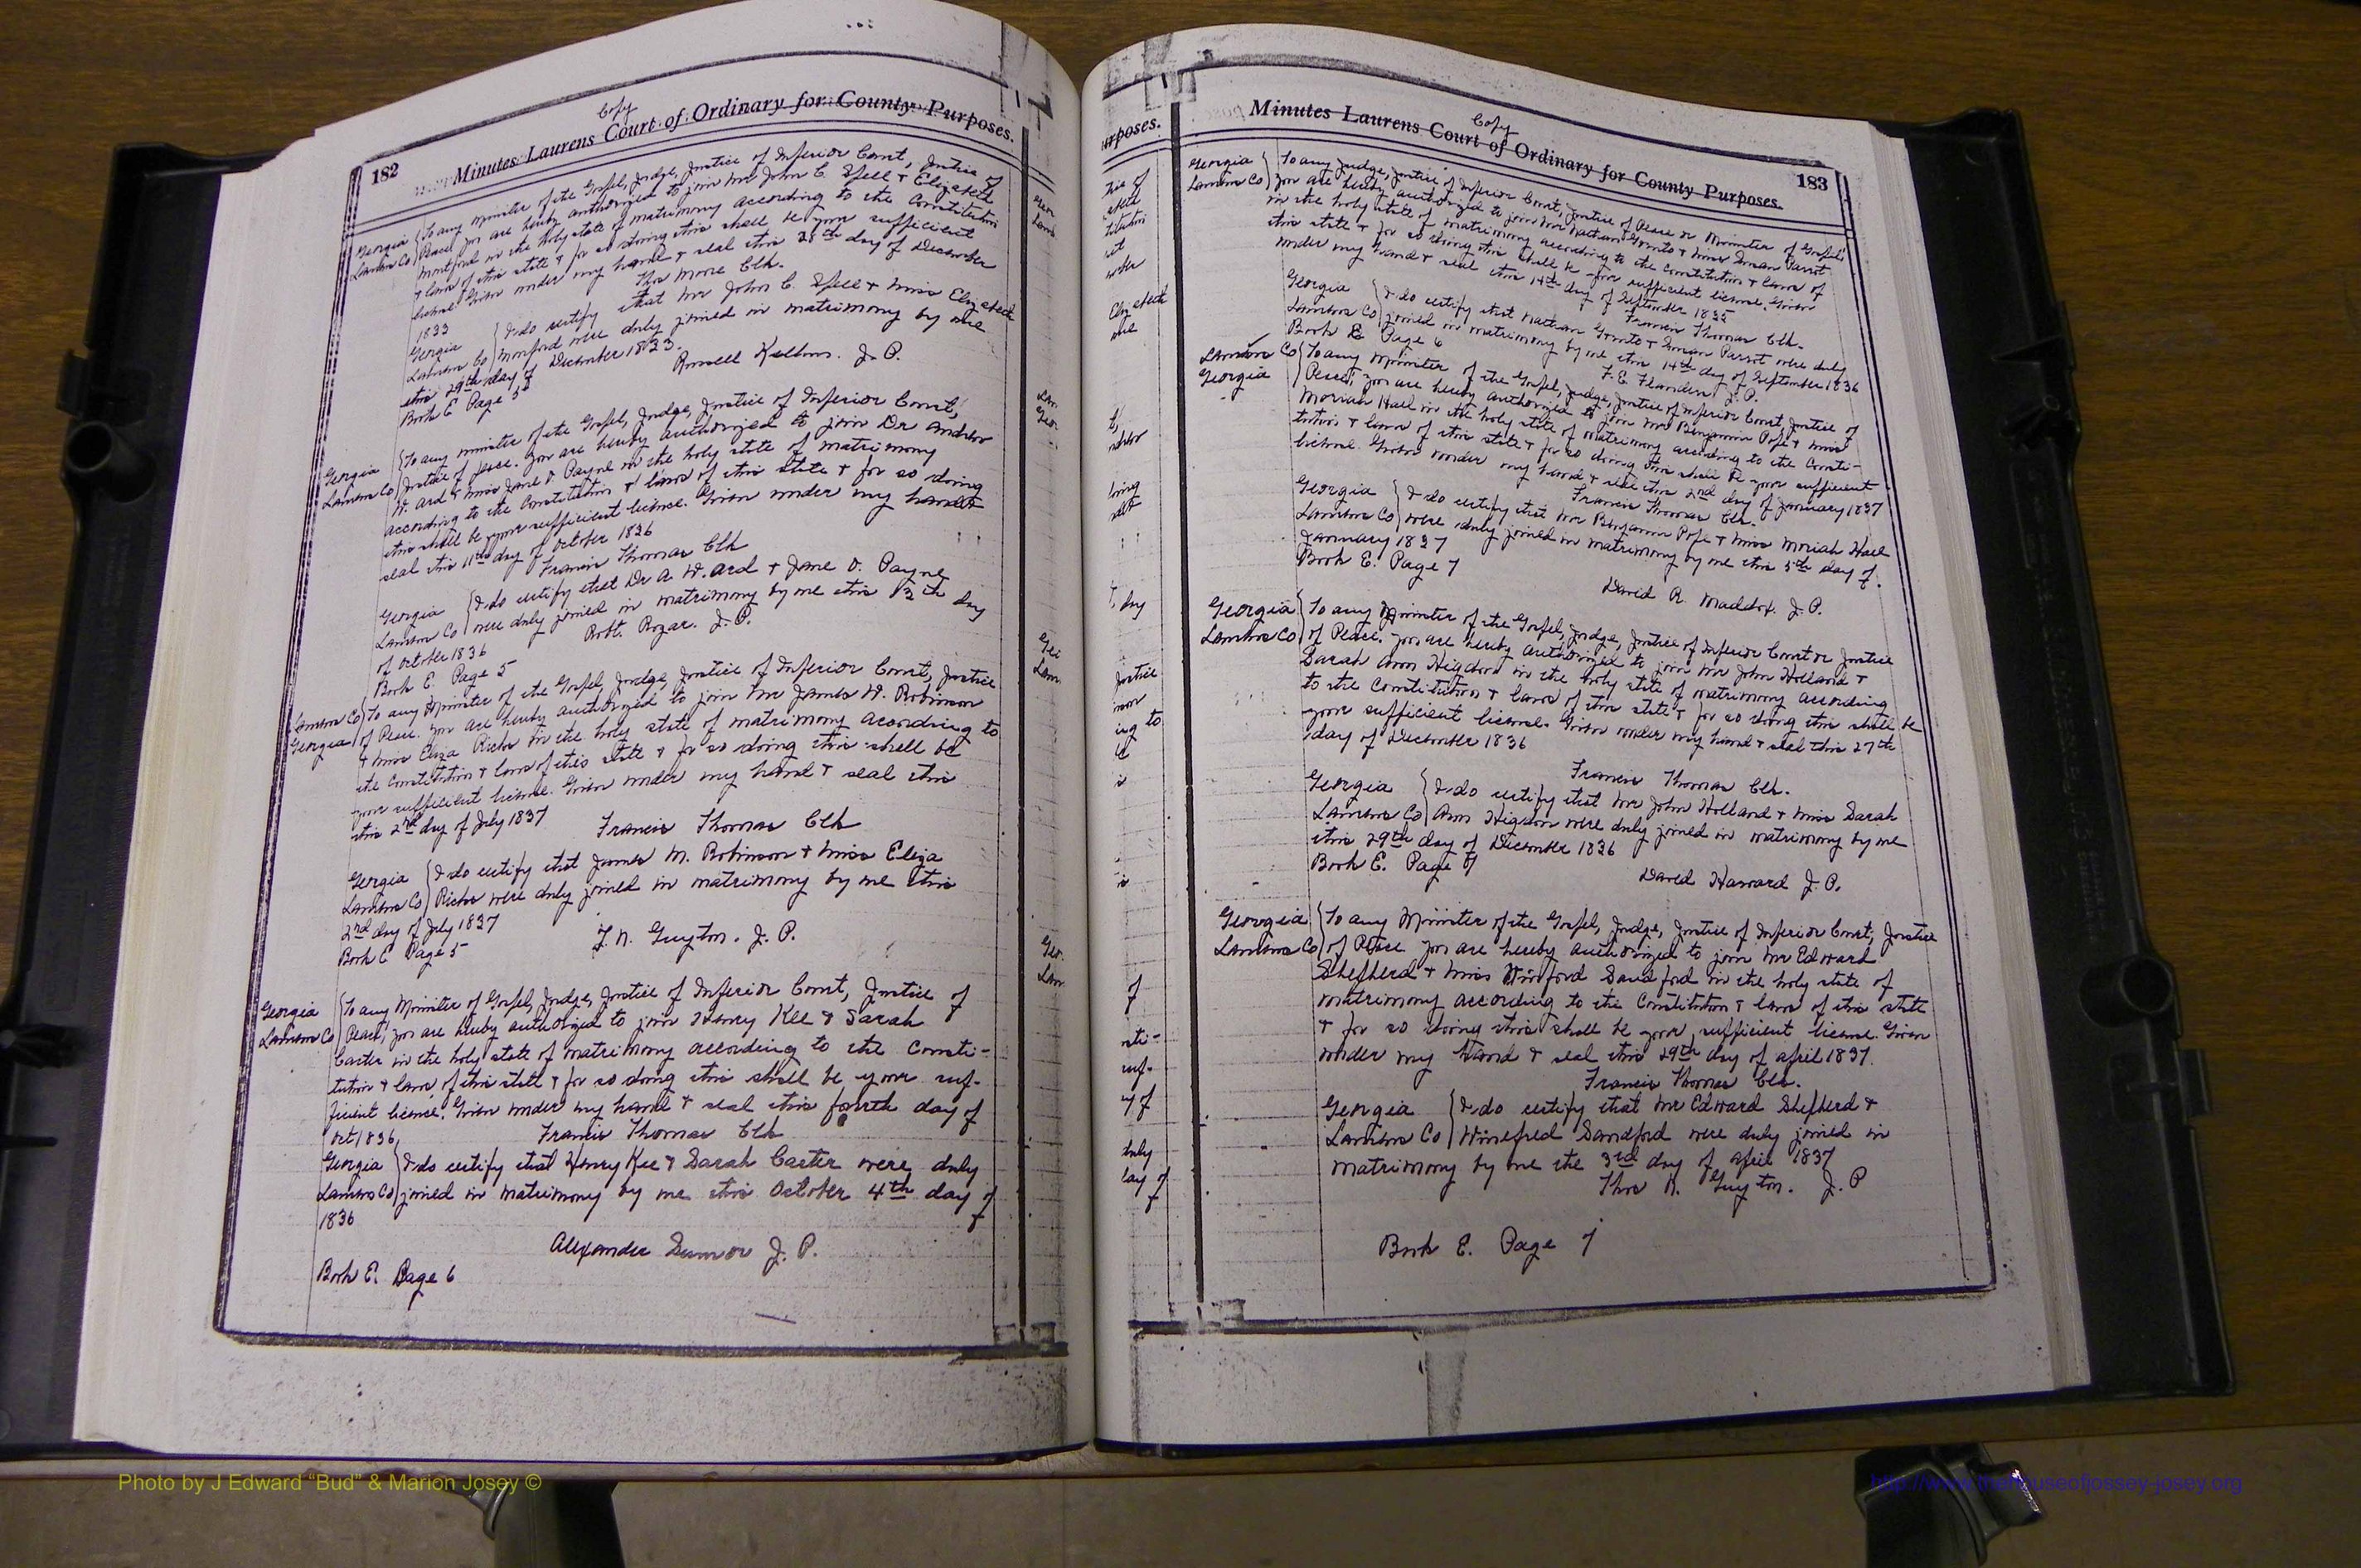 Copy
182 Minutes Laurens Court of Ordinary for County Purposes.
Georgia To any Minister of the Gospel, Judge, Justice of Inferior Court, Justice of
Laurens Co Peace, you are hereby authorized to join Mr John C. Spell & Elizabeth
Montford in the holy state of matrimony according to the Constitution
& laws of this state & for so doing this shall be your sufficient
license. Given under my hand & seal this 28th day of December
1833 Thos Moore Clk.
Georgia I do certify that Mr John C. Spell & Miss Elizabeth
Laurens Co Monford were duly joined in matrimony by me
this 29th day of December 1833.
Book E Page 5 J. P.
Georgia To any minister of the Gospel, Judge, Justice of Inferior Court,
Laurens Co Justice of peace. You are hereby authorized to join Dr Andrew
W. ard & Miss Jane V. Payne in the holy state of matrimony
according to the Constitution & laws of this state & for so doing
this shall be your sufficient license. Given under my hand &
seal this 11th day of October 1836
Francis Thomas Clk
Georgia I do certify that Dr A. W. ard & Jane V. Payne
Laurens Co were duly joined in matrimony by me this 13th day
of October 1836 Robt. Rozar. J. P.
Book E Page 5
Laurens Co To any Minister of the Gospel, Judge, Justice of Inferior Court, Justice
Georgia of Peace. You are hereby authorized to join Mr James W. Robinson
& Miss Eliza Ricks in the holy state of matrimony according to
the Constitution & laws of this state & for so doing this shall be
your sufficient license. Given under my hand & seal this
this 2nd day of July 1837 Francis Thomas Clk
Georgia I do certify that James M. Robinson & Miss Eliza
Laurens Co Ricks were duly joined in matrimony by me this
2nd day of July 1837
Book E Page 5 T. N. Guyton. J. P.
Georgia To any Minister of Gospel, Judge, Justice of Inferior Court, Justice of
Laurens Co Peace, you are hereby authorized to join Henry Kee & Sarah
Carter in the holy state of matrimony according to the Consti-
tution & laws of this state & for so doing this shall be your suf-
ficient license. Given under my hand & seal this fourth day of
Oct 1836, Francis Thomas Clk
Georgia I do certify that Henry Kee & Sarah Carter were duly
Laurens Co joined in matrimony by me this October 4th day of
1836
Alexander J. P.
Book E. Page 6
Copy
Minutes Laurens Court of Ordinary for County Purposes. 183
Georgia To any Judge, Justice of Inferior Court, Justice of Peace or Minister of Gospel
Laurens Co you are hereby authorized to join Mr Nathan & Miss Susan Parrot
in the holy state of matrimony according to the Constitution & laws of
this state & for so doing this shall be your sufficient license. Given
under my hand & seal this 14th day of September 1835
Francis Thomas Clk.
Georgia I do certify that Nathan & Susan Parrot were duly
Laurens Co joined in matrimony by me this 14th day of September 1836
Book E Page 6 F. E. Flanders, J. P.
Laurens Co To any Minister of the Gospel, Judge, Justice of Inferior Court, Justice of
Georgia Peace, you are hereby authorized to join Mr Benjamin Pope & Miss
Moriah Hall in the holy state of matrimony according to the Consti-
tution & laws of this state & for so doing this shall be your sufficient
license. Given under my hand & seal this 2nd day of January 1837
Francis Thomas Clk.
Georgia I do certify that Mr Benjamin Pope & Miss Moriah Hall
Laurens Co were duly joined in matrimony by me this 5th day of
January 1837
Book E. Page 7 David R. Maddox. J. P.
Georgia To any Minister of the Gospel, Judge, Justice of Inferior Court or Justice
Laurens Co of Peace. You are hereby authorized to join Mr John Holland &
Sarah Ann Higdon in the holy state of matrimony according
to the Constitution & laws of this state & for so doing this shall be
your sufficient license. Given under my hand & seal this 27th
day of December 1836
Francis Thomas Clk.
Georgia I do certify that Mr John Holland & Miss Sarah
Laurens Co Ann Higdon were duly joined in matrimony by me
this 29th day of December 1836
Book E. Page 7 David Harvard J. P.
Georgia To any Minister of the Gospel, Judge, Justice of Inferior Court, Justice
Laurens Co of Peace you are hereby authorized to join Mr Edward
Shefherd & Miss Winford Sandford in the holy state of
matrimony according to the Constitution & laws of this state
& for so doing this shall be your sufficient license. Given
under my hand & seal this 29th day of april 1837.
Francis Thomas Clk.
Georgia I do certify that Mr Edward Shefherd &
Laurens Co Winefred Sandford were duly joined in
matrimony by me the 3rd day of april 1837
Thos N. Guyton. J. P
Book E. Page 7
Photo by J Edward “Bud” & Marion Josey ©
http://www.thehouseofjossey-josey.org